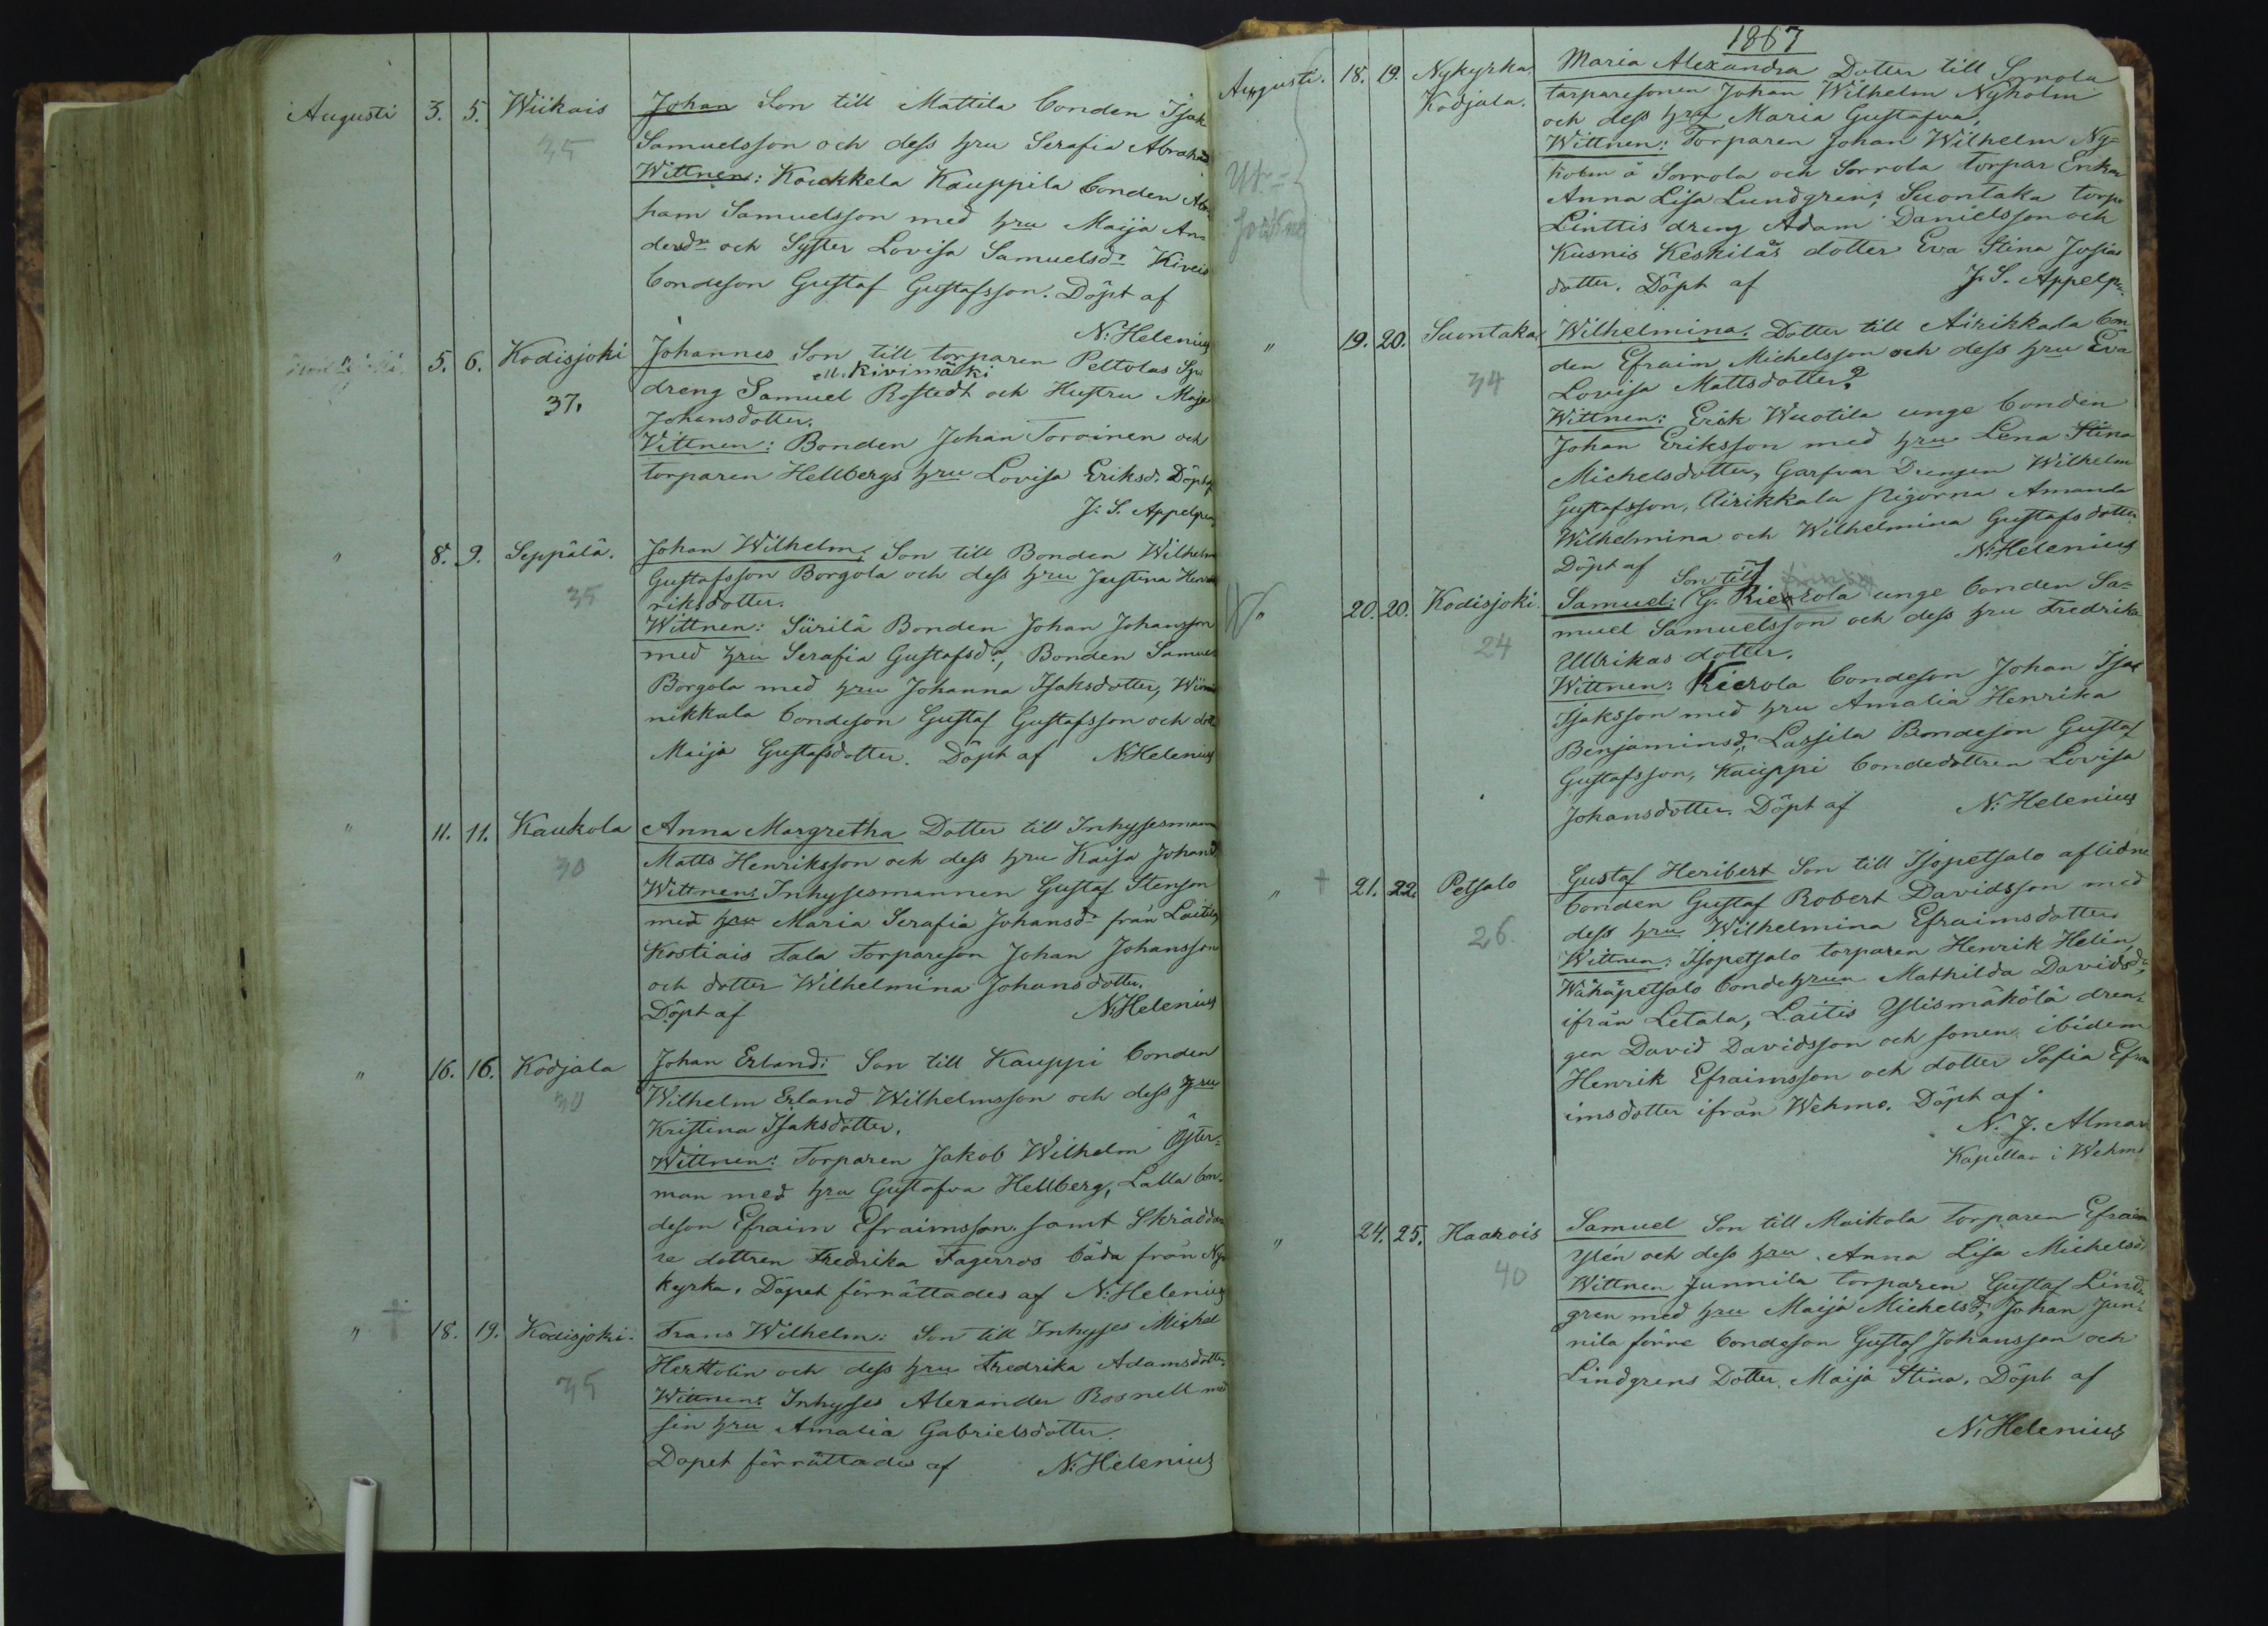 Augusti 3. 5. Wiikais Johan Son till Mattila bonden Isak
35 Samuelsson och dess hru Serafia Abrahd
Wittnen: Kouckkela Kauppila bonden Abra-
ham Samuelsson med hru Maija An-
dersdr och Syster Lovisa Samuelsdr Kiveis
bondeson Gustaf Gustafsson. Döpt af
N: Helenius
5. 6. Kodisjoki Johannes Son till torparen Peltolas
ell. Kivimäki
37. dreng Samuel Rostedt och Hustru Maja
Johansdotter.
Vittnen: Bonden Johan Toroinen och
torparen Hellbergs hru Lovisa Eriksd. Döpt af
J. S. Appelgren
" 8. 9. Seppälä. Johan Wilhelm: Son till Bonden Wilhelm
35 Gustafsson Borgola och dess hru Justina Hen-
riksdotter.
Wittnen: Siirilä Bonden Johan Johansson
med hru Serafia Gustafsdr, Bonden Samuel
Borgola med hru Johanna Isaksdotter,
nikkala bondeson Gustaf Gustafsson och dotter
Maija Gustafsdotter. Döpt af N: Helenius
" 11. 11. Kaukola Anna Margretha Dotter till Inhysesmann
30 Matts Henriksson och dess hru Kaisa Johansd
Wittnen: Inhysesmannen Gustaf Stenson
med hru Maria Serafia Johansdr från Laitila,
Kostiais Tala Torpareson Johan Johansson
och dotter Wilhelmina Johansdotter.
Döpt af N: Helenius
" 16. 16. Kodjala Johan Erland: Son till Kauppi bonden
30 Wilhelm Erland Wilhelmsson och dess hru
Kristina Isaksdotter.
Wittnen: Torparen Jakob Wilhelm Öster-
man med hru Gustafva Hellberg, Lalla bon-
deson Efraim Efraimsson. samt Skrädda-
re dottren Fredrika Fagerros båda från Ny-
kyrka. Döpet förrättades af N: Helenius
" † 18. 19. Kodisjoki. Frans Wilhelm: Son till Inhyses Mickel
35 Herttolin och dess hru Fredrika Adamsdotter
Wittnen: Inhyses Alexander Rosnell med
sin hru Amalia Gabrielsdotter.
Döpet förrättades af N: Helenius
1867
Augusti. 18. 19. Nykyrka, Maria Alexandra Dotter till Sorrola
Kodjala. torparesonen Johan Wilhelm Nyholm
och dess hru Maria Gustafva.
Wittnen: Torparen Johan Wilhelm Ny-
holm å Sorrola och Sorrola torpar Enkan
Anna Lisa Lundgren; Suontaka torp.
Linttis dreng Adam Danielsson och
Kusnis Keskiläs dotter Eva Stina Josias
dotter. Döpt af J. S. Appelgr.
" 19. 20. Suontaka Wilhelmina. Dotter till Airikkala bon-
den Efraim Michelsson och dess hru Eva
34 Lovisa Mattsdotter?
Wittnen: Erik Wuotila unge bonden
Johan Eriksson med hru Lena Stina
Michelsdotter, Garfvar Drengen Wilhelm
Gustafsson, Airikkala pigorna Amanda
Wilhelmina och Wilhelmina Gustafsdotter
Döpt af N: Helenius
Son till
" 20. 20. Kodisjoki. Samuel: G. Rierola unge bonden Sa-
24 muel Samuelsson och dess hru Fredrika
Ullrikas dotter.
Wittnen: Rierola bondeson Johan Isak
Isaksson med hru Amalia Henrika
Benjaminsd: Lassila Bondeson Gustaf
Gustafsson, Kauppi bondedottren Lovisa
Johansdotter. Döpt af N: Helenius
" † 21. 22. Petsalo Gustaf Heribert Son till Isopetsalo aflidne
26. bonden Gustaf Robert Davidsson med
dess hru Wilhelmina Efraimsdotter
Wittnen: Isopetsalo torparen Henrik Helin,
Wähäpetsalo bondehrun Mathilda Davidsdr,
ifrån Letala, Laitis Ylismäkölä dren-
gen David Davidsson och sonen ibidem
Henrik Efraimsson och dotter Sofia Efra
imsdotter ifrån Wehmo. Döpt af
N. J. Alman
Kapellan i Wehmo
" 24. 25. Haarois Samuel Son till Maikola torparen Efraim
Ylén och dess hru Anna Lisa Michelsd.
40 Wittnen Junnila torparen Gustaf Lind-
gren med hru Maija Michelsd, Johan Jun-
nila förre bondeson Gustaf Johansson och
Lindgrens Dotter Maija Stina. Döpt af
N: Helenius